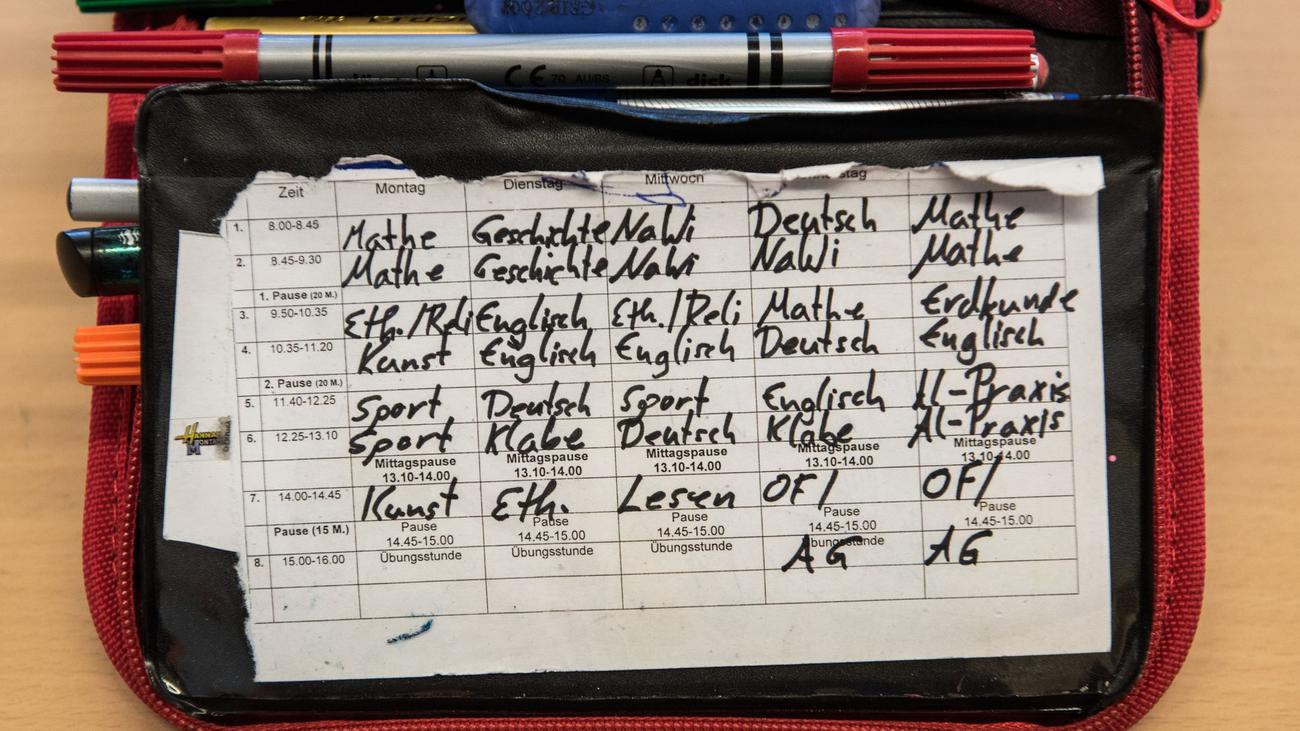 CE 70 AU/BS A dick
Zeit Montag Dienstag Mittwoch stag
1. 8.00-8.45 Mathe Geschichte NaWi Deutsch Mathe
2. 8.45-9.30 Mathe Geschichte NaWi NaWi Mathe
1. Pause (20 M.)
3. 9.50-10.35 Eth./Reli Englisch Eth./Reli Mathe Erdkunde
4. 10.35-11.20 Kunst Englisch Englisch Deutsch Englisch
2. Pause (20 M.)
5. 11.40-12.25 Sport Deutsch Sport Englisch Al-Praxis
6. 12.25-13.10 Sport Klabe Deutsch Klabe Al-Praxis
Mittagspause Mittagspause Mittagspause Mittagspause Mittagspause
13.10-14.00 13.10-14.00 13.10-14.00 13.10-14.00 13.10-14.00
7. 14.00-14.45 Kunst Eth. Lesen OF/ OF/
Pause (15 M.) Pause Pause Pause Pause Pause
14.45-15.00 14.45-15.00 14.45-15.00 14.45-15.00 14.45-15.00
8. 15.00-16.00 Übungsstunde Übungsstunde Übungsstunde Übungsstunde
AG AG
HANNAH
MONTANA